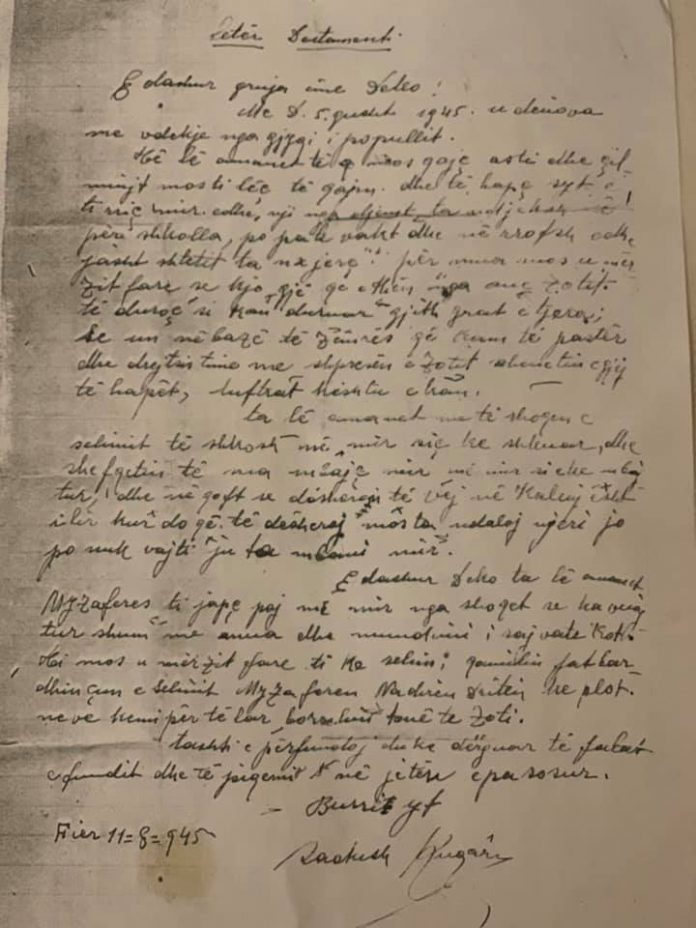 Letër Destamenti
E dashur gruja ime Deko!
Me D. 5. gusht 1945. u denova
me vdekje nga gjygi i popullit.
Në lë amanet ti q mos qajç asti dhe çil
minjt mosti lëç të qajn. dhe të hapç syt e
ti siç mir. edhe, një nga
për shkolla, po pat vakt dhe në rrofsh edhe
jasht shtetit ta nxjerç për mua mos u mër
zit fare se kjo gjë që e kën nga ana e Zotit.
të duroç si kan duruar gjith grat e tjera;
se un në bazë të zëmrës që kam të pastër
dhe drejtsin time me shpresën e Zotit
të hapët, luftrat kështu e kan.
ta lë amanet me të shoqen e
selimit të shkosh më mir siç ke shkuar, dhe
shefqetin të ma mësojç mir më mir si e ke
tur, dhe në qoft se dësheroj të vej në
i lir kur do që të dësheroj mos ta ndaloj njeri jo
po nuk vajti ju ta mbani mir.
E dashur Deko ta lë amanet
Myzaferes ti japç paj më mir nga shoqet se ka vuaj
tur shum me anua dhe mundimi i saj vate kot.
Ni mos u mërzit fare ti ke selim; qamilin fatbar-
dhin çun e Selimit Myzaferen Nadiren Dritën ke plot.
neve kemi për të lar borxhin tonë te Zoti.
tashti e përfundoj duke dërguar të falat
e fundit dhe të piqemi në jetën e pasosur.
- Burrit yt
Fier 11=8=945
Sadush